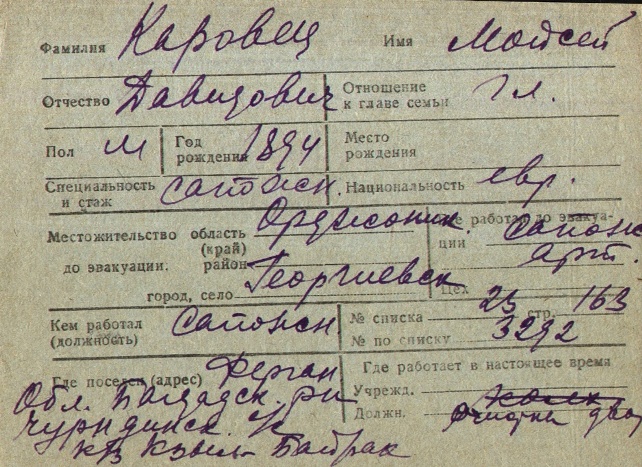 Фамилия Каровец Имя Мойсей
Отчество Давидович Отношение к главе семьи Гл.
Пол м Год рождения 1894 Место рождения
Специальность и стаж сапожн. Национальность евр.
Местожительство область (край) Орджоник. работал до эвакуации сапожн. арт.
до эвакуации. район
город, село Георгиевск Цех
Кем работал (должность) сапожн № списка 25 стр. 163
№ по списку 3292
Где поселен (адрес) Ферган Где работает в настоящее время
Обл. Багдадск. рн Учрежд.
Должн.
к/з Кзыл Байрак